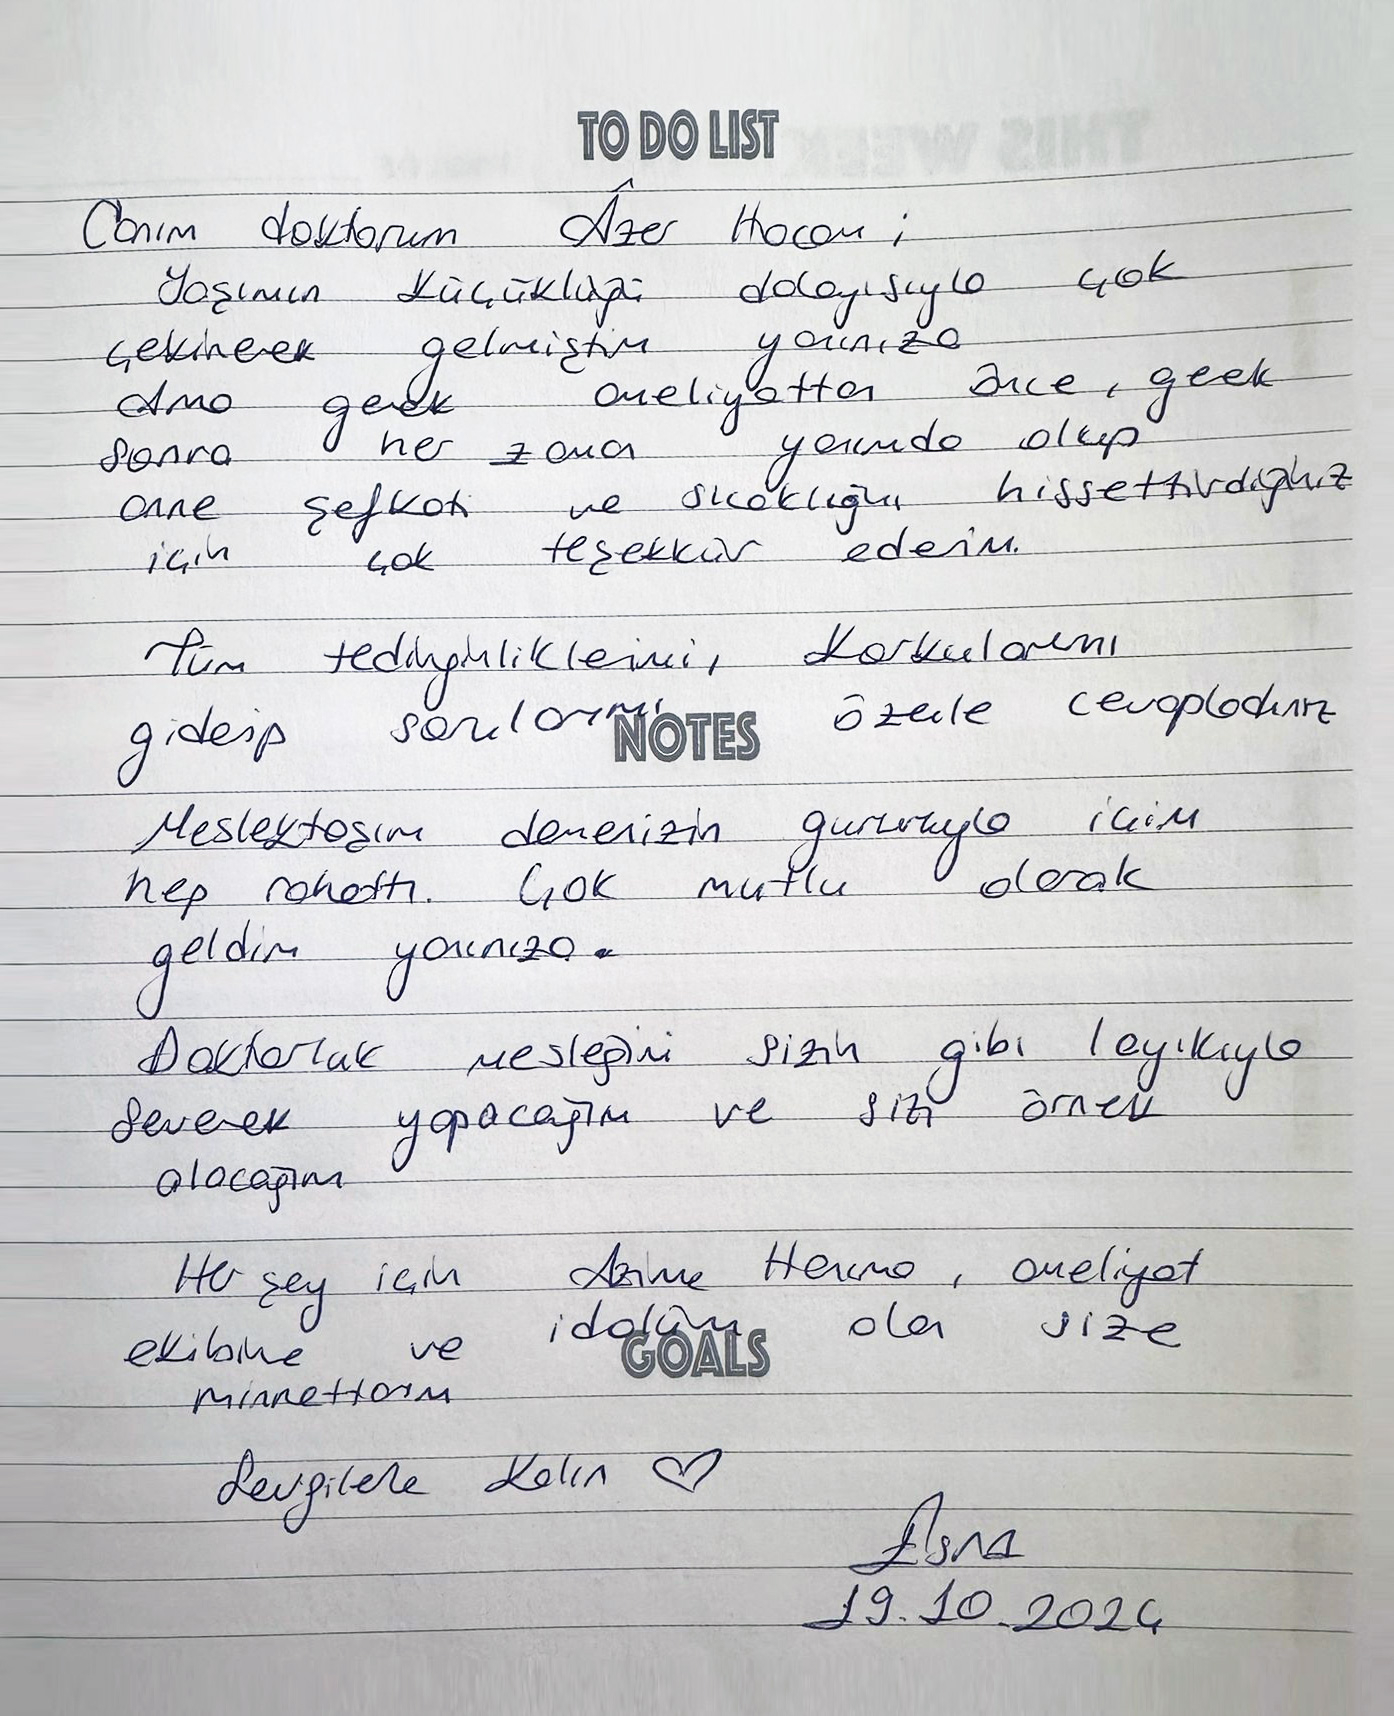 TO DO LIST
Canım doktorum Âzer Hocam;
Yaşımın küçüklüğü dolayısıyla çok
çekinerek gelmiştim yanınıza
ama gerek ameliyattan önce, gerek
sonra her zaman yanımda olup
anne şefkati ve sıcaklığını hissettirdiğiniz
için çok teşekkür ederim.
Tüm tedirginliklerimi, korkularımı
giderip sorularımı özenle cevapladınız
NOTES
Meslektaşım demenizin gururuyla içim
hep rahattı. Çok mutlu olarak
geldim yanınıza.
Doktorluk mesleğini sizin gibi layıkıyla
severek yapacağım ve sizi örnek
alacağım
Her şey için Azime Hanıma, ameliyat
ekibine ve idolüm olan size
GOALS
minnettarım
Sevgilerle Kalın ♡
Esma
19.10.2024